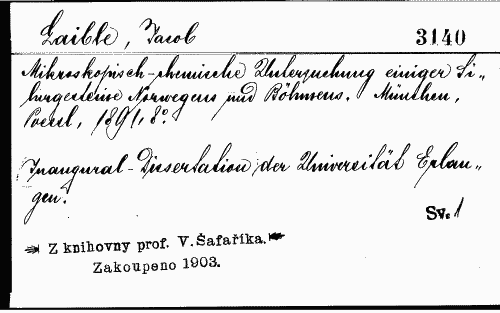 Laible, Jacob
3140
Mikroskopisch-chemische Untersuchung einiger Si„
burgesteine Norwegens und Böhmens. München,
Poessl, 1891, 8°.
Inaugural-Dissertation der Universität Erlan„
gen.
Sv. 1
Z knihovny prof. V. Šafaříka.
Zakoupeno 1903.